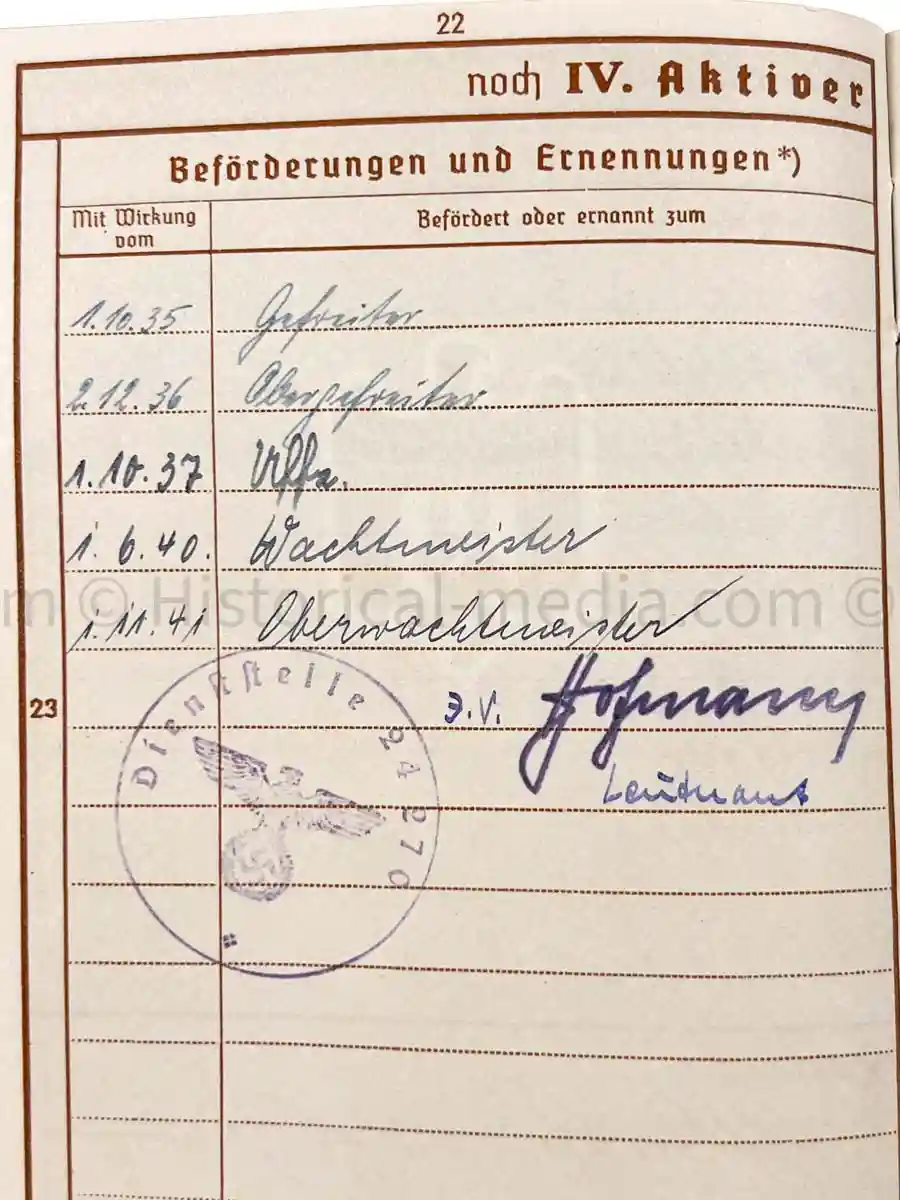 22
noch IV. Aktiver
Beförderungen und Ernennungen*)
Mit Wirkung vom
Befördert oder ernannt zum
1.10.35 Gefreiter
2.12.36 Obergefreiter
1.10.37 Uffz.
1.6.40. Wachtmeister
1.11.41 Oberwachtmeister
om © Historical-media.com ©
23
J.V. Hofmann
Leutnant
Dienststelle 24270